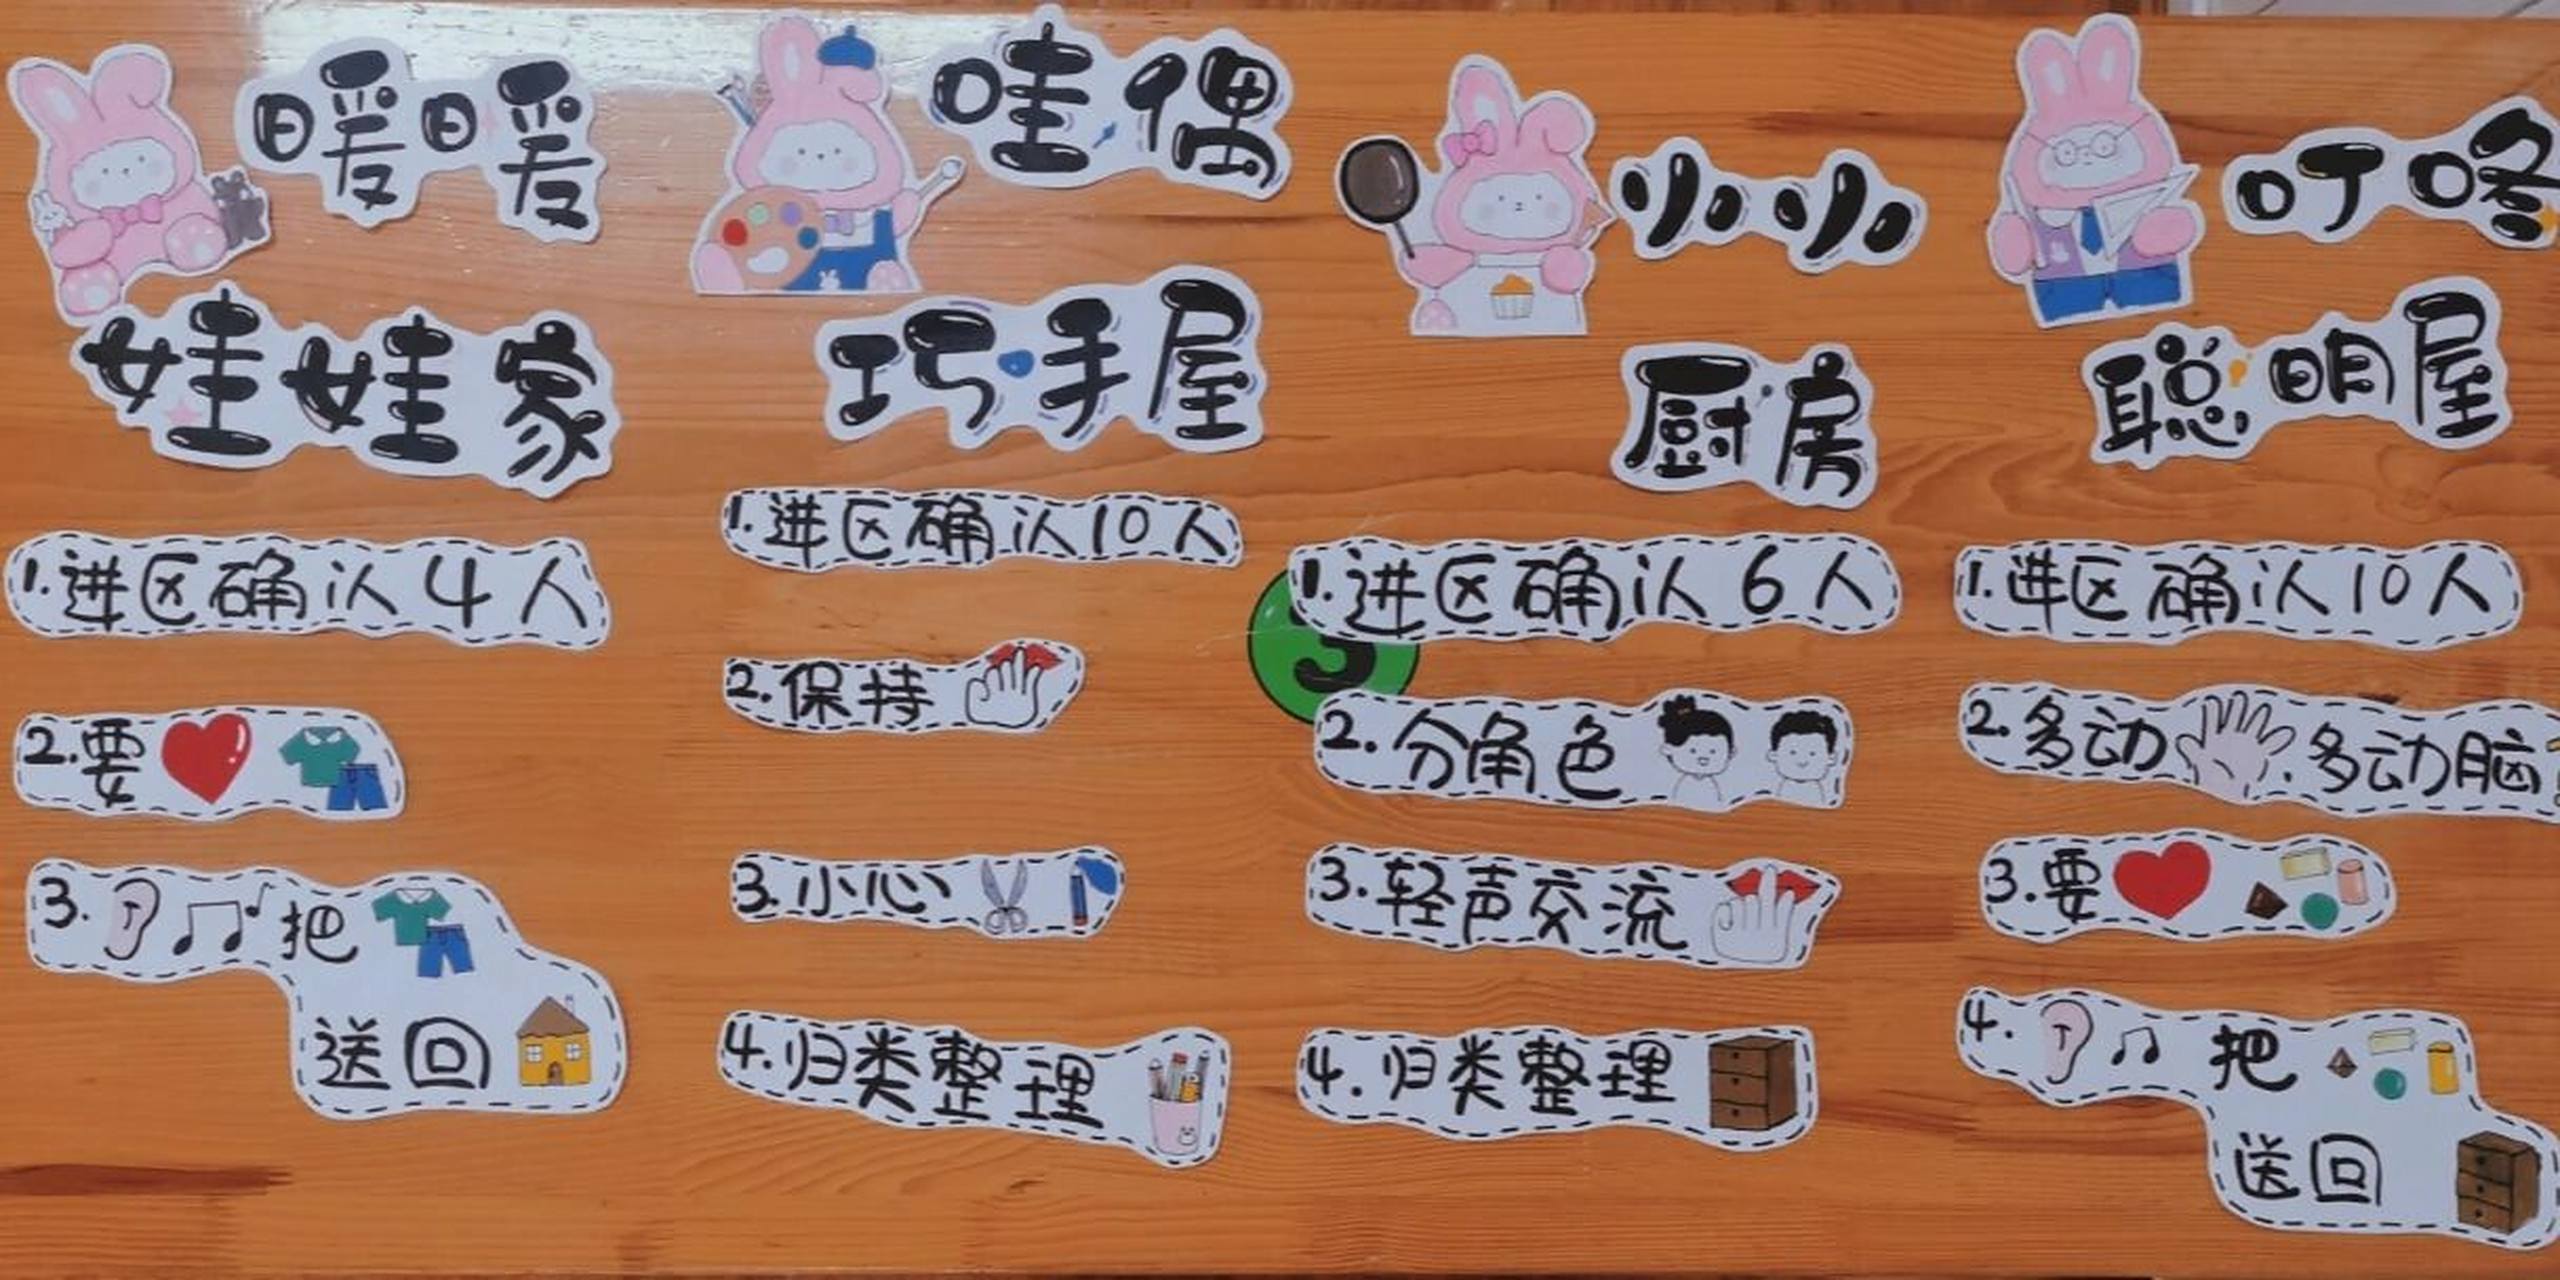 暖暖
娃娃家
1.进区确认4人
2.要
3.把
送回
哇偶
巧手屋
1.进区确认10人
2.保持
3.小心
4.归类整理
小小
厨房
3
1.进区确认6人
2.分角色
3.轻声交流
4.归类整理
叮咚
聪明屋
1.进区确认10人
2.多动.多动脑
3.要
4.把
送回